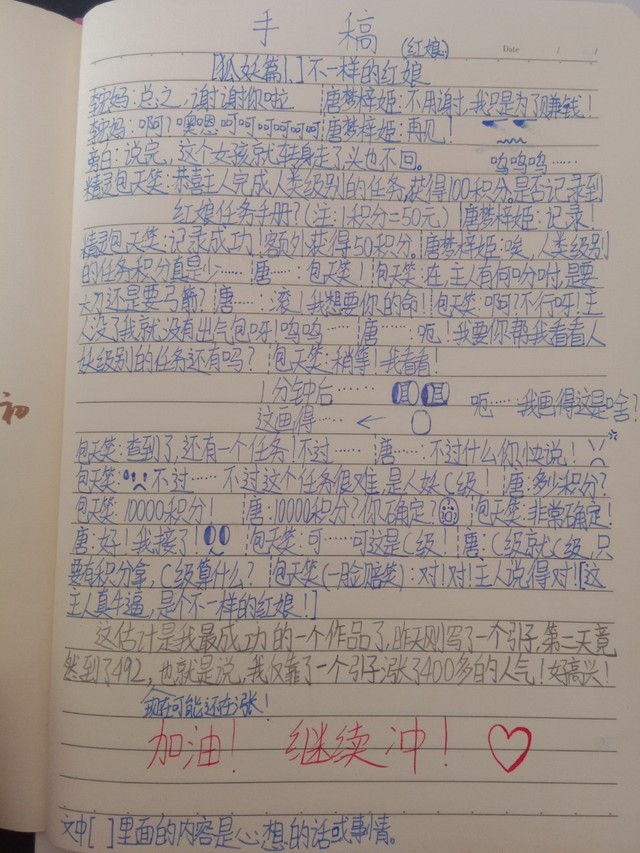 手 稿 (红娘)
Date / /
[狐妖篇1.]不一样的红娘
李宓妈:总之,谢谢你啦 唐梦梓姬:不用谢,我只是为了赚钱!
李宓妈:啊?噢嗯呵呵呵呵呵呵 唐梦梓姬:再见!
旁白:说完,这个女孩就转身走了,头也不回。 呜呜呜……
精灵包天笑:恭喜主人完成人类级别的任务,获得100积分。是否记录到
红娘任务手册?(注:1积分=50元) 唐梦梓姬:记录!
精灵包天笑:记录成功!额外获得50积分。 唐梦梓姬:唉,人类级别
的任务积分真是少…… 唐……:包天笑! 包天笑:在,主人有何吩咐,是要
大刀还是要弓箭? 唐……:滚!我想要你的命! 包天笑:啊?不行呀!主
人没了我就没有出气包呀!呜呜…… 唐……:呃!我要你帮我看看人
妖级别的任务还有吗? 包天笑:稍等!我看看!
1分钟后…… 呃……我画得这是啥?
这画得…… ←
包天笑:查到了,还有一个任务!不过…… 唐……:不过什么,你快说!
包天笑: 不过……不过这个任务很难,是人妖C级! 唐:多少积分?
包天笑:10000积分! 唐:10000积分?你确定? 包天笑:非常确定!
唐:好!我接了! 包天笑:可……可这是C级! 唐:C级就C级,只
要有积分拿,C级算什么? 包天笑(一脸赔笑):对!对!主人说得对![这
主人真牛逼,是个不一样的红娘!]
这估计是我最成功的一个作品了,昨天刚写了一个引子,第二天竟
然到了492,也就是说,我仅靠了一个引子涨了400多的人气!好高兴!
现在可能还在涨!
加油! 继续冲!
文中[ ]里面的内容是心想的话或事情。
初